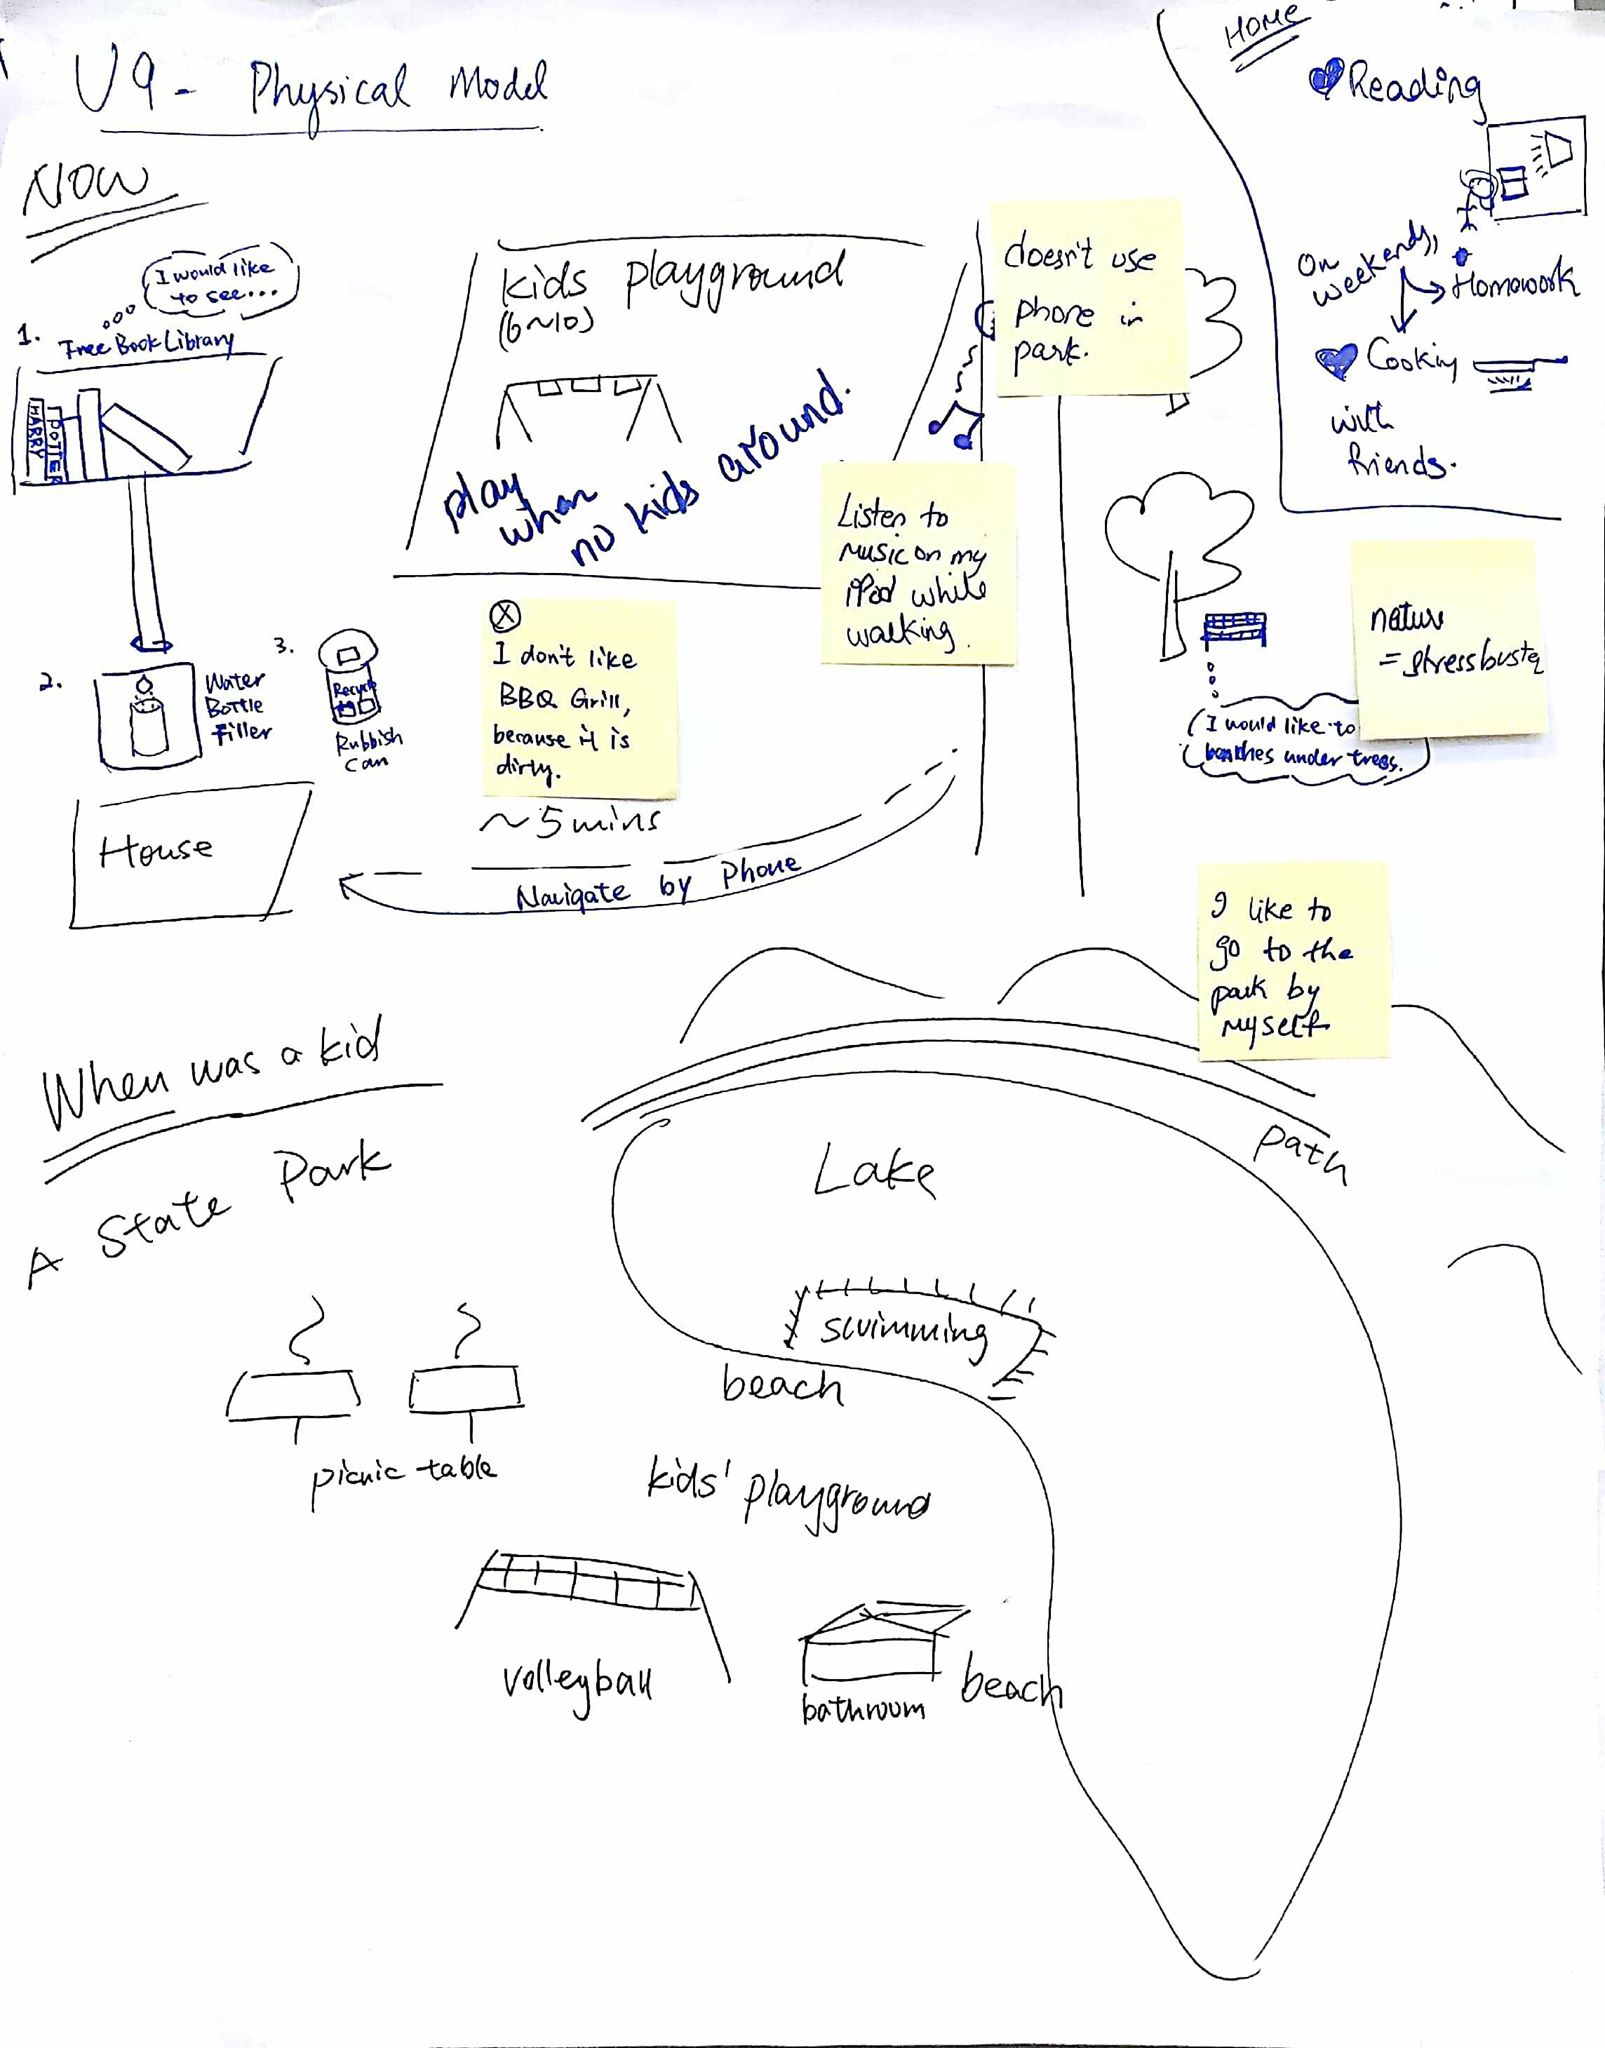 U9 - Physical Model
NOW
I would like
to see...
1.
Free Book Library
HARRY
POTTER
2.
Water
Bottle
Filler
3.
Recycle
Rubbish
Can
House
kids playground
(6~10)
play
when
no kids around.
Ⓧ
I don't like
BBQ Grill,
because it is
dirty.
~5mins
Navigate by Phone
doesn't use
phone in
park.
Listen to
music on my
iPod while
walking.
HOME
Reading
On
weekends,
Homework
Cooking
with
friends.
nature
= stressbuster
I would like to
benches under trees.
I like to
go to the
park by
myself
When was a kid
A State Park
path
Lake
swimming
beach
picnic table
kids' playground
volleyball
bathroom
beach